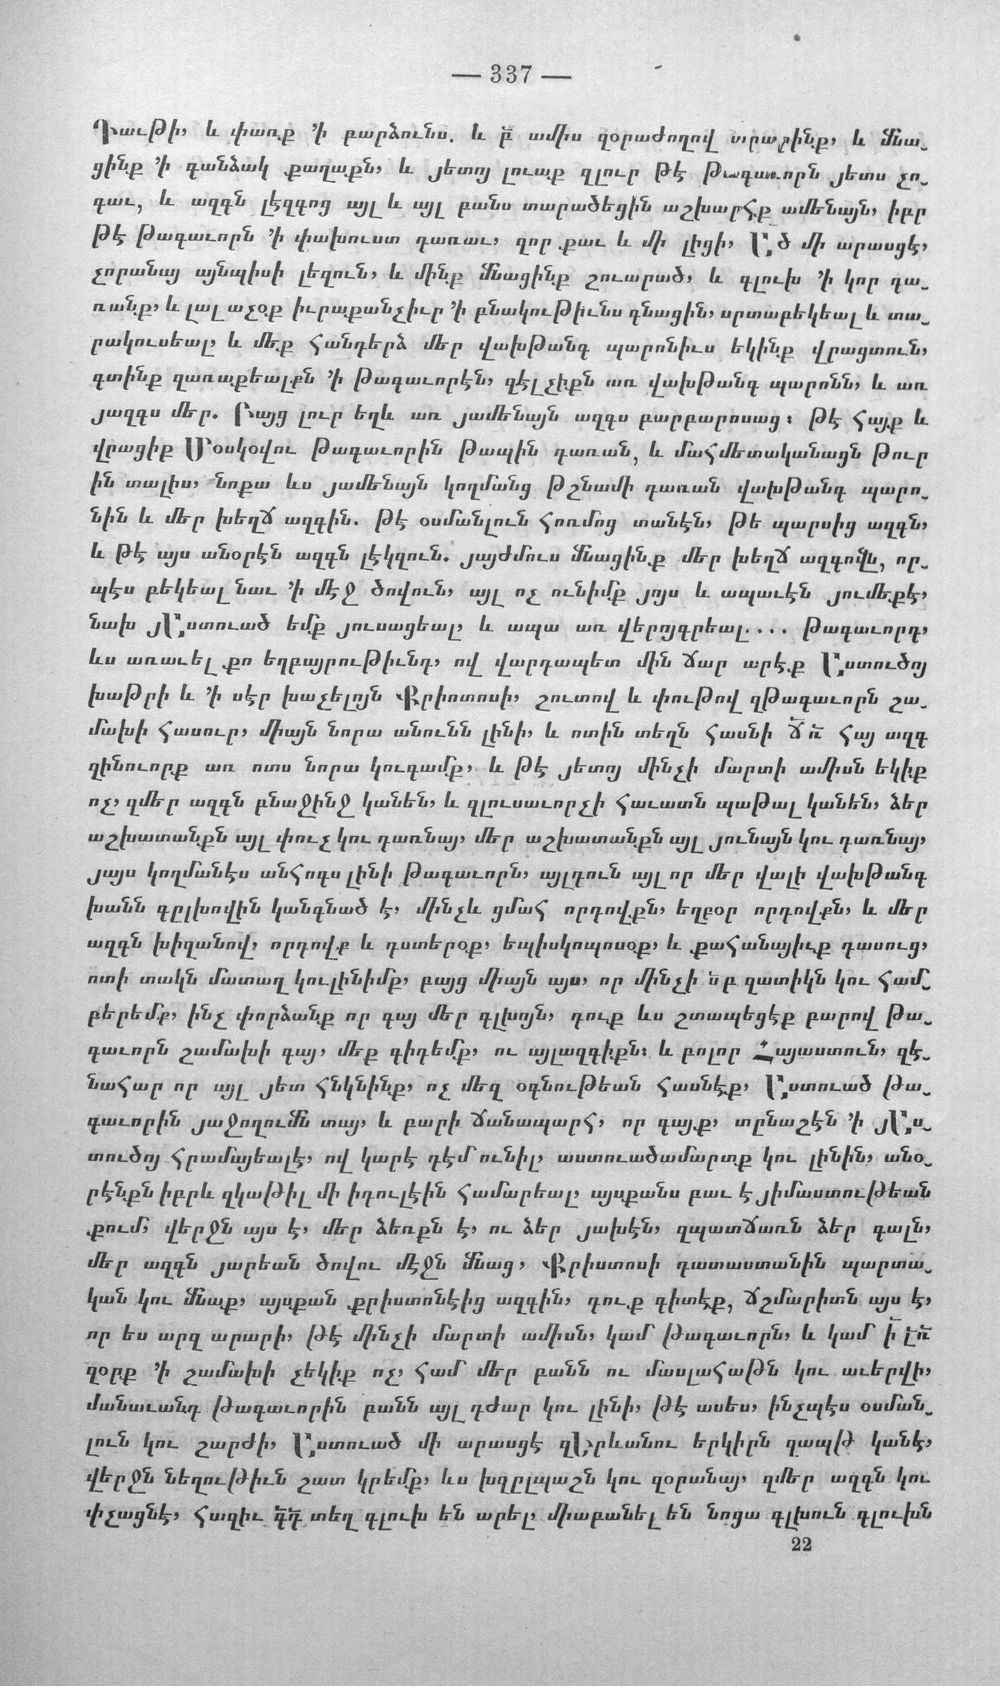 — 337 —
Դաւթի, և փառք ՚ի բարձունս. և բ̃ ամիս զօրաժողով արարինք, և մնա֊
ցինք ՚ի գանձակ քաղաքն, և յետոյ լուաք զլուր թէ թագաւորն յետս չո֊
գաւ, և ազգն լէզգոց այլ և այլ բանս տարածեցին աշխարհք ամենայն, իբր
թէ թագաւորն ՚ի փախուստ դառաւ, զոր քաւ և մի լիցի, Ա̃ծ մի արասցէ,
չորանայ այնպիսի լեզուն, և մինք մնացինք շուարած, և գլուխ ՚ի կոր դա֊
ռանք, և լալ աչօք իւրաքանչիւր ՚ի բնակութիւնս գնացին, սրտաբեկեալ և տա֊
րակուսեալ, և մեք հանդերձ մեր վախթանգ պարոնիւս եկինք վրացտուն,
գտինք զառաքեալքն ՚ի թագաւորէն, զէլչիքն առ վախթանգ պարոնն, և առ
յազգս մեր. Բայց լուր եղև առ յամենայն ազգս բարբարոսաց։ թէ Հայք և
վրացիք Մօսկօվու թագաւորին թապին դառան, և մահմետականացն թուր
ին տալիս, նոքա ևս յամենայն կողմանց թշնամի դառան վախթանգ պարո֊
նին և մեր խեղճ ազգին. թէ օսմանլուն Հռոմոց տանէն, թե պարսից ազգն,
և թէ այս անօրէն ազգն լէկզուն. յայժմուս մնացինք մեր խեղճ ազգովս, որ֊
պէս բեկեալ նաւ ՚ի մէջ ծովուն, այլ ոչ ունիմք յոյս և ապաւէն յումեքէ,
նախ յԱստուած եմք յուսացեալ, և ապա առ վերոյգրեալ.... թագաւորդ,
ևս առաւել քո եղբայրութիւնդ, ով վարդապետ մին ճար արէք Աստուծոյ
խաթրի և ՚ի սէր խաչելոյն Քրիոտոսի, շուտով և փութով զթագաւորն շա֊
մախի հասուր, միայն նորա անունն լինի, և ոտին տեղն հասնի ճ̃ ռ̃ Հայ ազգ
զինուորք առ ոտս նորա կուգամք, և թէ յետոյ մինչի մարտի ամիսն եկիք
ոչ, զմեր ազգն բնաջինջ կանեն, և զլուսաւորչի հաւատն պաթալ կանեն, ձեր
աշխատանքն այլ փուչ կու դառնայ, մեր աշխատանքն այլ յունայն կու դառնայ,
յայս կողմանէս անհոդս լինի թագաւորն, այլդուն այլ որ մեր վալի վախթանգ
խանն գըլխովին կանգնած է, մինչև ցմահ որդովքն, եղբօր որդովքն, և մեր
ազգն խիզանով, որդովք և դստերօք, եպիսկոպոսօք, և քահանայիւք դասուց,
ոտի տակն մատաղ կուլինիմք, բայց միայն այս, որ մինչի սբ զատիկն կու համ֊
բերեմք, ինչ փորձանք որ գայ մեր գլխոյն, դուք ևս շտապեցէք բարով թա֊
գաւորն շամախի գայ, մեք գիդեմք, ու այլազգիքն։ և բոլոր Հայաստուն, զէ֊
նահար որ այլ յետ հնկնինք, ոչ մեզ օգնութեան հասնէք, Աստուած թա֊
գաւորին յաջողումն տայ, և բարի ճանապարհ, որ գայք, տընաշէն ՚ի յԱս֊
տուծոյ հրամայեալէ, ով կարէ դէմ ունիլ, աստուածամարտք կու լինին, անօ֊
րէնքն իբրև զկաթիլ մի իդուլէին համարեալ, այսքանս բաւ է յիմաստութեան
քում, վերջն այս է, մեր ձեռքն է, ու ձեր յախէն, զպատճառն ձեր գալն,
մեր ազգն յարեան ծովու մէջն մնաց, Քրիստոսի դատաստանին պարտա֊
կան կու մնաք, այսքան քրիստոնէից ազգին, դուք գիտէք, ճշմարիտն այս է,
որ ես արզ արարի, թէ մինչի մարտի ամիսն, կամ թագաւորն, և կամ ի̃ լռ̃
զօրք ՚ի շամախի չեկիք ոչ, համ մեր բանն ու մասլահաթն կու աւերվի,
մանաւանդ թագաւորին բանն այլ դժար կու լինի, թէ ասես, ինչպէս օսման֊
լուն կու շարժի, Աստուած մի արասցէ զԵրևանու երկիրն զապթ կանէ,
վերջն նեղութիւն շատ կրեմք, ևս խզըլպաշն կու զօրանայ, զմեր ազգն կու
փչացնէ, հազիւ գ̃դ̃ տեղ գլուխ են արել, միաբանել են նոցա գլխուն գլուխն
22